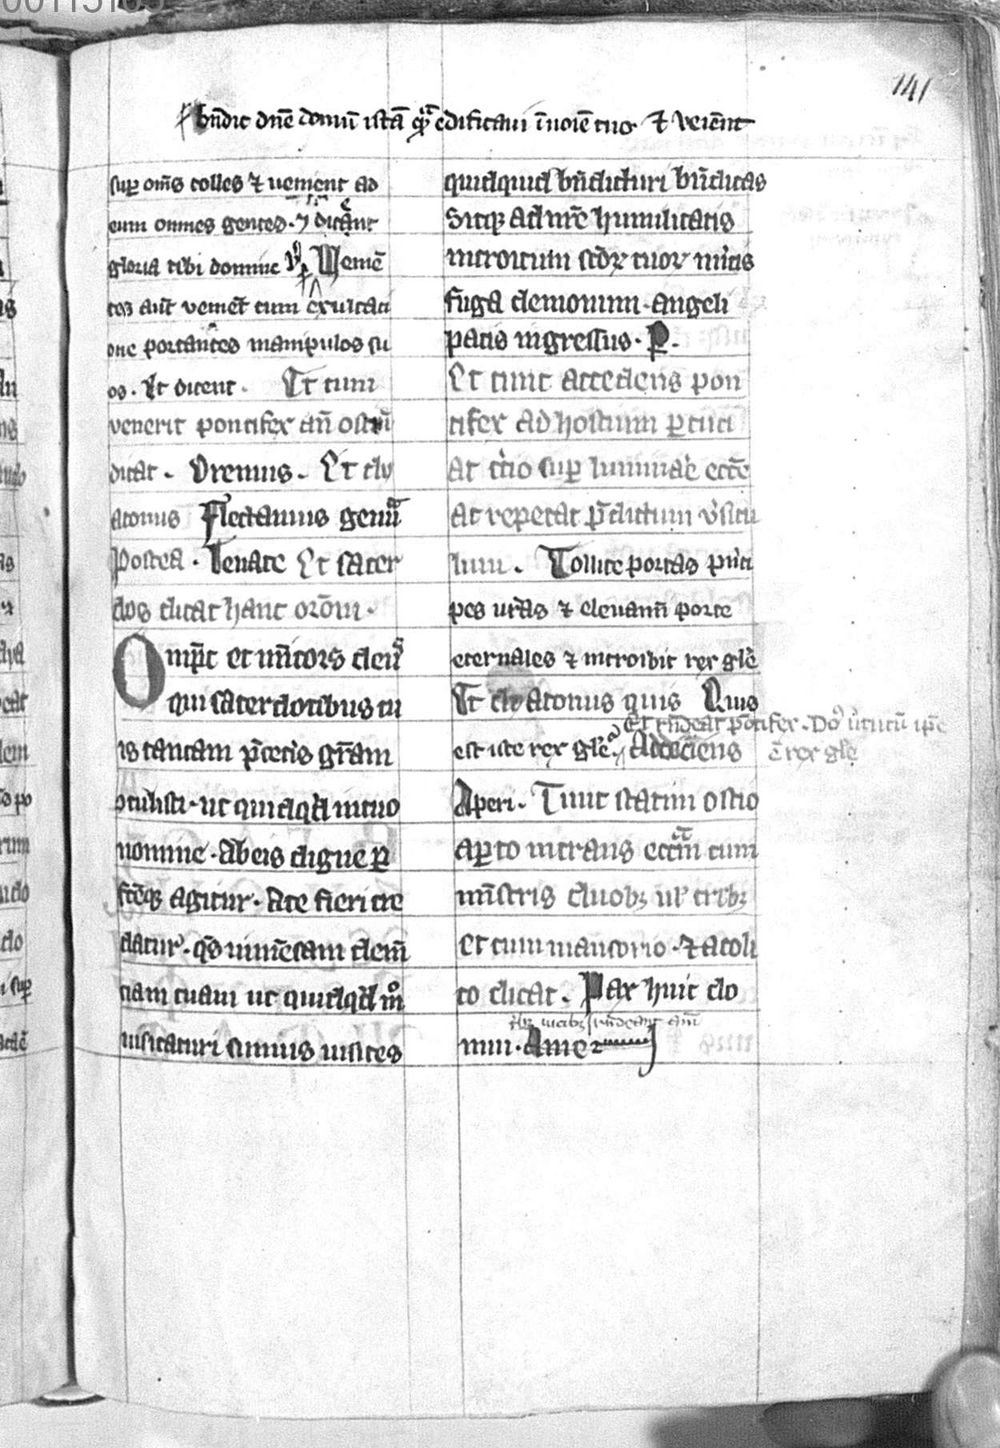 141
bn̄dic dn̄e domū istā quā edificaui ī noīe tuo ⁊ veīent
sup̄ om̄s colles ⁊ uenient ad
eum omnes gentes · ⁊ dicant
gloria tibi domine Veniē
tes aūt venient cum exultati
one portantes manipulos su
os · Et dicent · Et cum
venerit pontifex an̄ ostiū
dicat · Oremus · Et dy
aconus Flectamus genua
Postea · Leuate Et sacer
dos dicat hanc orōm ·
Omp̄s et mīcors deus
qui sacerdotibus tu
is tantam p̄ ceteris grām
cotulisti · ut quicqd in tuo
nomine · ab eis digne p̄
fecteq; agitur · a te fieri cre
datur · qs īmensam clem̄
tiam tuam ut quicqd mo
uisitaturi sumus uisites
quicquid bn̄dicturi bn̄dicas
Sitq; ad nr̄e humilitatis
introitum scōꝝ tuoꝝ mītis
fuga demonum · angeli
pacis ingressus · P̄ ·
Et tunc accedens pon
tifex ad hostium p̄cuti
at t̄cio sup̄ liminare ecc̄e
at repetat p̄dictum v̄sicu
lum · Tollite portas p̄nci
pes ur̄as ⁊ eleuamī porte
eternales ⁊ introibit rex gl̄e
Et dyaconus quis Quis
Et rn̄deat p̄ontifex · Do᷒ v̄tutū ip̄e
est iste rex gl̄e Adiciens
ē rex gl̄e
Aperi · Tunc statim ostio
ap̄to intrans ecc̄am cum
mīstris duob; ul̓ trib;
et cum mansorio · ⁊ acoli
to dicat · Pax huic do
mui · Amen